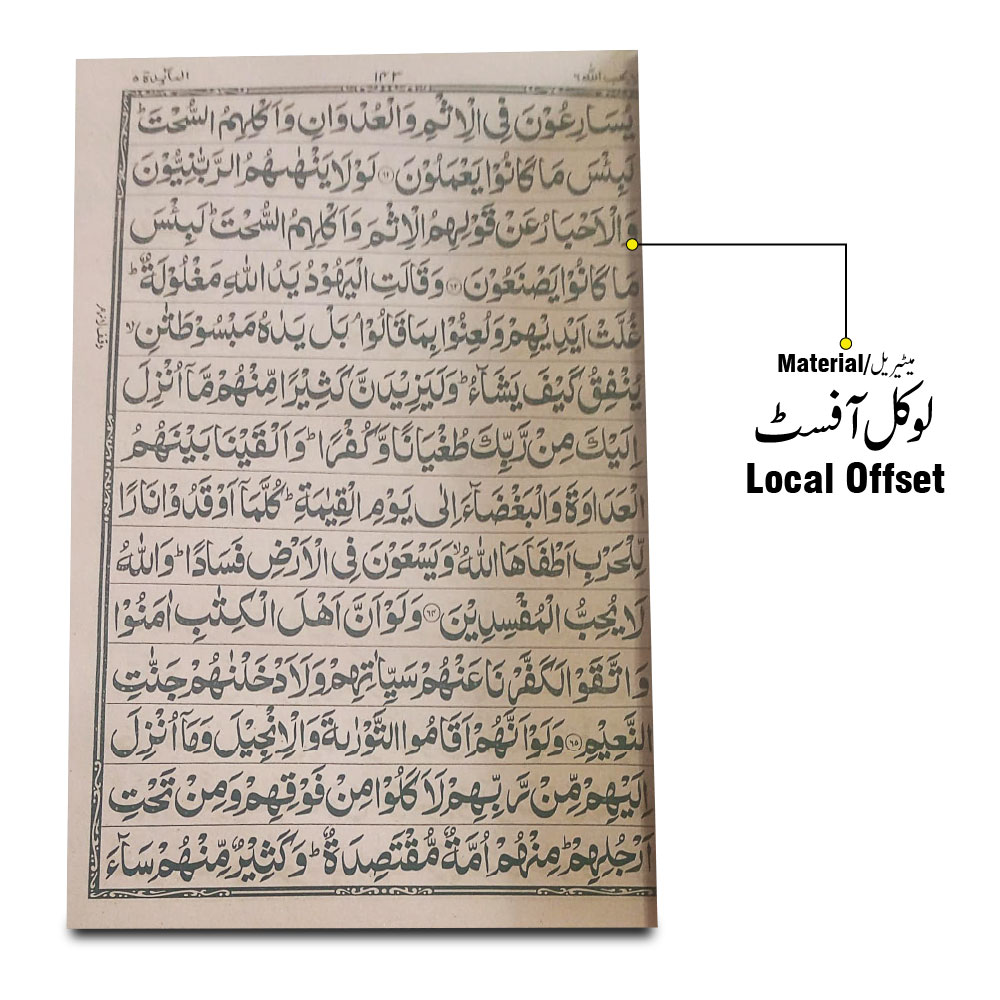 المآئدة ٥
١٤٣
لا يحب الله ٦
يُسَارِعُوْنَ فِى الْاِثْمِ وَالْعُدْوَانِ وَاَكْلِهِمُ السُّحْتَ ؕ
لَبِئْسَ مَا كَانُوْا يَعْمَلُوْنَ ﴿۶۲﴾ لَوْلَا يَنْهٰىهُمُ الرَّبّٰنِيُّوْنَ
وَالْاَحْبَارُ عَنْ قَوْلِهِمُ الْاِثْمَ وَاَكْلِهِمُ السُّحْتَ ؕ لَبِئْسَ
مَا كَانُوْا يَصْنَعُوْنَ ﴿۶۳﴾ وَقَالَتِ الْيَهُوْدُ يَدُ اللّٰهِ مَغْلُوْلَةٌ ؕ
غُلَّتْ اَيْدِيْهِمْ وَلُعِنُوْا بِمَا قَالُوْا ۘ بَلْ يَدٰهُ مَبْسُوْطَتٰنِ ۙ
يُنْفِقُ كَيْفَ يَشَآءُ ؕ وَلَيَزِيْدَنَّ كَثِيْرًا مِّنْهُمْ مَّاۤ اُنْزِلَ
اِلَيْكَ مِنْ رَّبِّكَ طُغْيَانًا وَّكُفْرًا ؕ وَاَلْقَيْنَا بَيْنَهُمُ
الْعَدَاوَةَ وَالْبَغْضَآءَ اِلٰى يَوْمِ الْقِيٰمَةِ ؕ كُلَّمَاۤ اَوْقَدُوْا نَارًا
لِّلْحَرْبِ اَطْفَاَهَا اللّٰهُ ۙ وَيَسْعَوْنَ فِى الْاَرْضِ فَسَادًا ؕ وَاللّٰهُ
لَا يُحِبُّ الْمُفْسِدِيْنَ ﴿۶۴﴾ وَلَوْ اَنَّ اَهْلَ الْكِتٰبِ اٰمَنُوْا
وَاتَّقَوْا لَكَفَّرْنَا عَنْهُمْ سَيِّاٰتِهِمْ وَلَاَدْخَلْنٰهُمْ جَنّٰتِ
النَّعِيْمِ ﴿۶۵﴾ وَلَوْ اَنَّهُمْ اَقَامُوا التَّوْرٰىةَ وَالْاِنْجِيْلَ وَمَاۤ اُنْزِلَ
اِلَيْهِمْ مِّنْ رَّبِّهِمْ لَاَكَلُوْا مِنْ فَوْقِهِمْ وَمِنْ تَحْتِ
اَرْجُلِهِمْ ؕ مِنْهُمْ اُمَّةٌ مُّقْتَصِدَةٌ ؕ وَكَثِيْرٌ مِّنْهُمْ سَآءَ
Material/میٹیریل
لوکل آفسٹ
Local Offset